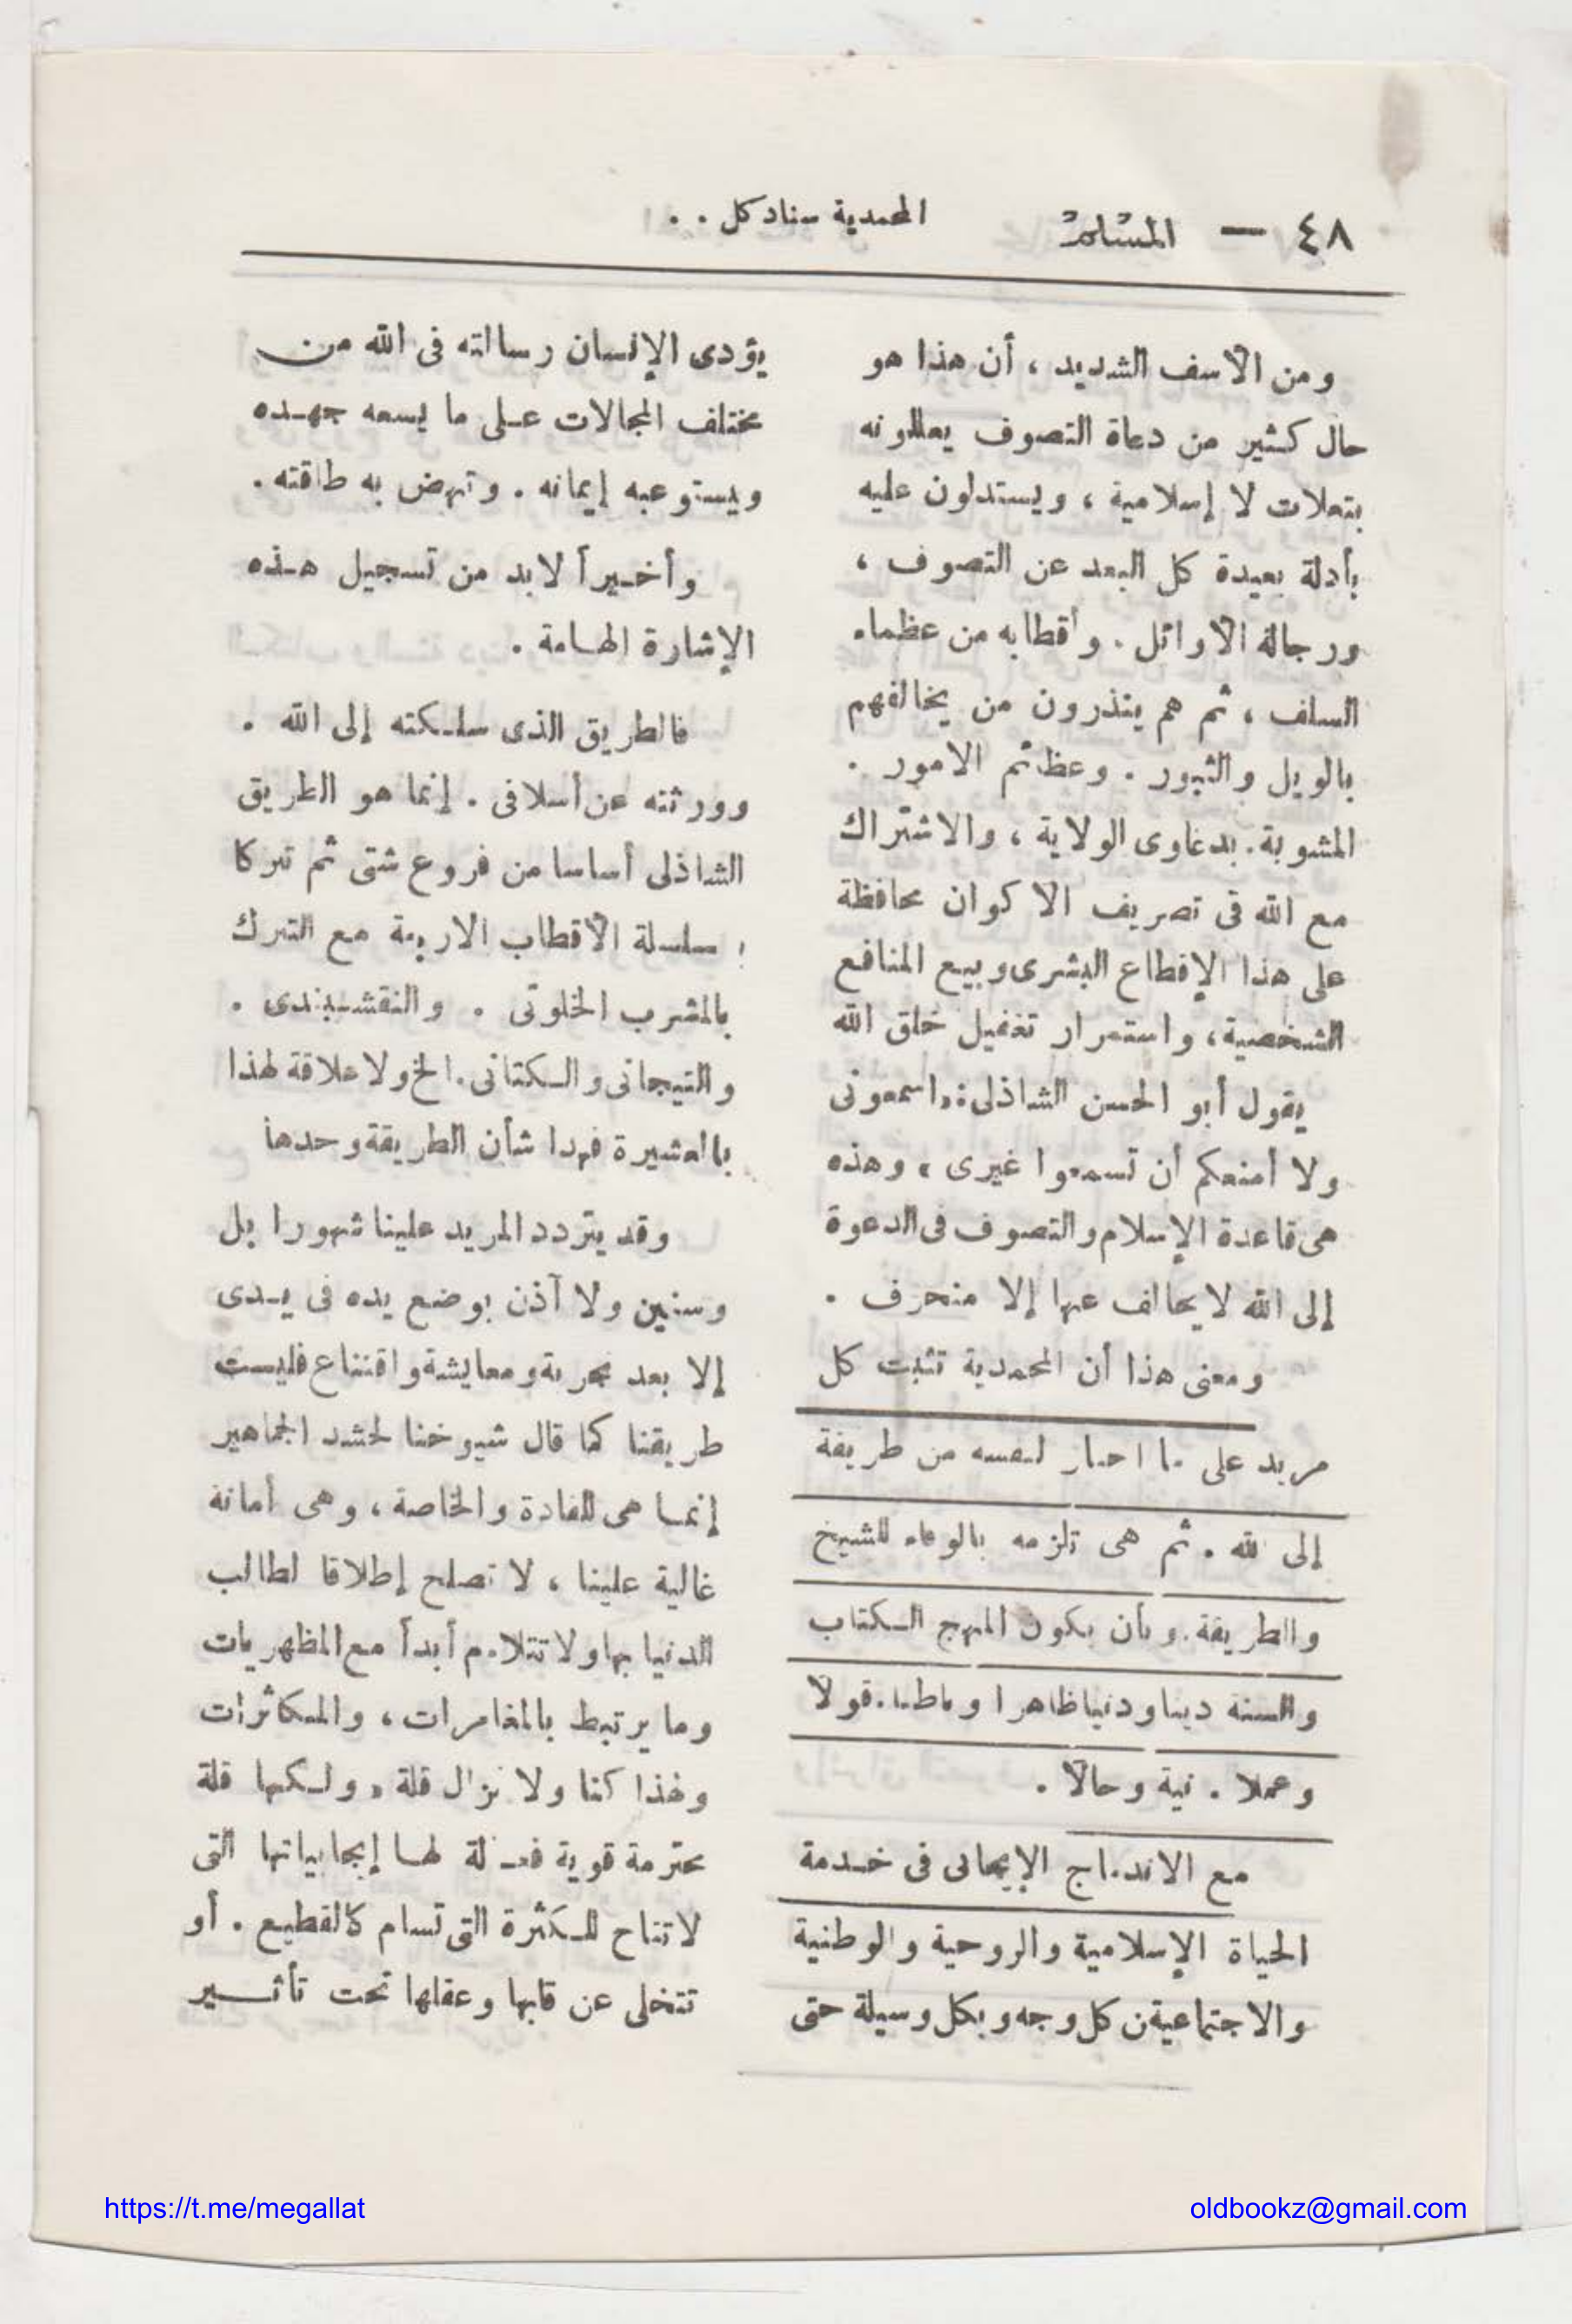 ٤٨ — المسلم
المحمدية سناد كل . .
ومن الأسف الشديد ، أن هذا هو
حال كثير من دعاة التصوف يعللونه
بتعلات لا إسلامية ، ويستدلون عليه
بأدلة بعيدة كل البعد عن التصوف ،
ورجاله الأوائل . وأقطابه من عظماء
السلف ، ثم هم ينذرون من يخالفهم
بالويل والثبور . وعظائم الامور .
المشوبة . بدعاوى الولاية ، والاشتراك
مع الله فى تصريف الاكوان محافظة
على هذا الإقطاع البشرى وبيع المنافع
الشخصية ، واستمرار تغفيل خلق الله
يقول أبو الحسن الشاذلى : « اسمعونى
ولا أمنعكم أن تسمعوا غيرى » وهذه
هى قاعدة الإسلام والتصوف فى الدعوة
إلى الله لا يخالف عنها إلا منحرف .
ومعنى هذا أن المحمدية تثبت كل
مريد على ما اختار لنفسه من طريقة
إلى الله . ثم هى تلزمه بالوفاء للشيخ
والطريقة . وبأن يكون المنهج الكتاب
والسنة دينا ودنيا ظاهرا وباطنا . قولا
وعملا . نية وحالا .
مع الاندماج الإيجابى فى خدمة
الحياة الإسلامية والروحية والوطنية
والاجتماعية من كل وجه وبكل وسيلة حتى
يؤدى الإنسان رسالته فى الله من
مختلف المجالات على ما يسعه جهده
ويستوعبه إيمانه . وتنهض به طاقته .
وأخيراً لابد من تسجيل هذه
الإشارة الهامة .
فالطريق الذى سلكته إلى الله .
وورثته عن أسلافى . إنما هو الطريق
الشاذلى أساسا من فروع شتى ثم تبركا
بسلسلة الأقطاب الاربعة مع التبرك
بالمشرب الخلوتى . والنقشبندى .
والتيجانى والكتانى . الخ ولا علاقة لهذا
بالعشيرة فهذا شأن الطريقة وحدها
وقد يتردد المريد علينا شهورا بل
وسنين ولا آذن بوضع يده فى يدى
إلا بعد تجربة ومعايشة واقتناع فليست
طريقنا كما قال شيوخنا لحشد الجماهير
إنما هى للقادة والخاصة ، وهى أمانة
غالية علينا ، لا تصلح إطلاقا لطالب
الدنيا بها ولا تتلاءم أبدأ مع المظهريات
وما يرتبط بالمغامرات ، والمكاثرات
ولهذا كنا ولا نزال قلة ، ولكنها قلة
محترمة قوية فعالة لها إيجابياتها التى
لا تتاح للكثرة التى تسام كالقطيع . أو
تتخلى عن قلبها وعقلها تحت تأثير
https://t.me/megallat
oldbookz@gmail.com